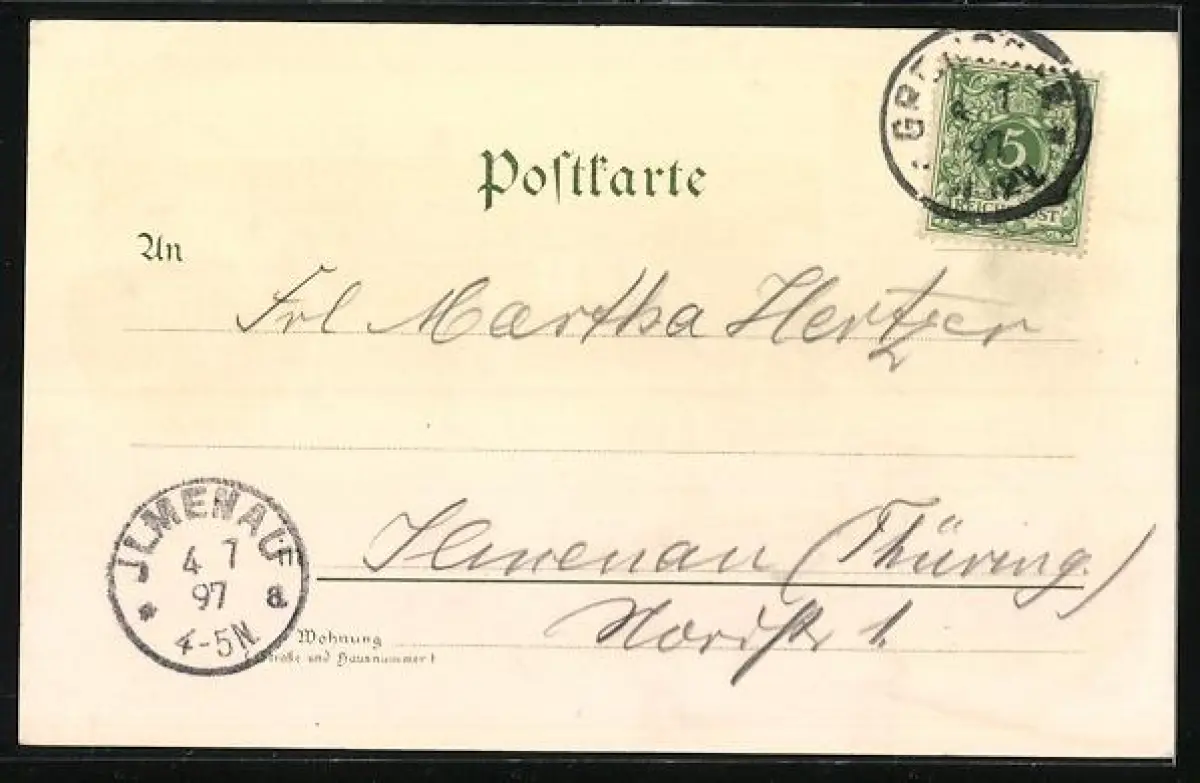 Postkarte
5
REICHSPOST
97
An
Frl Martha Hertzer
JLMENAU
4 7
97
a
4-5N.
Ilmenau (Thüring.)
Wohnung
(Straße und Hausnummer)
1.